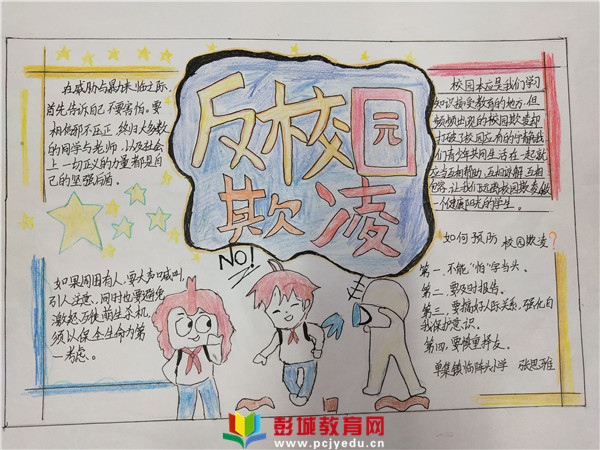 反校园
欺凌
NO!
在威胁与暴力来临之际,
首先告诉自己不要害怕。要
相信邪不压正,终归大多数
的同学与老师,以及社会
上一切正义的力量都是自
己的坚强后盾。
如果周围有人,要大声喊叫,
引人注意,同时也要避免
激起歹徒萌生杀机,
须以保全生命为第
一考虑。
校园本应是我们学习
知识接受教育的地方,但
频频出现的校园欺凌却
打破了校园应有的宁静。我
们青少年共同生活在一起就
应当互相帮助,互相谅解,互相
包容,让我们远离校园欺凌,做
一个健康阳光的学生。
如何预防校园欺凌?
第一、不能“怕”字当头。
第二、要及时报告。
第三、要搞好人际关系,强化自
我保护意识。
第四、要慎重择友。
单集镇 小学 张思雅
彭城教育网
www.pcjyedu.cn